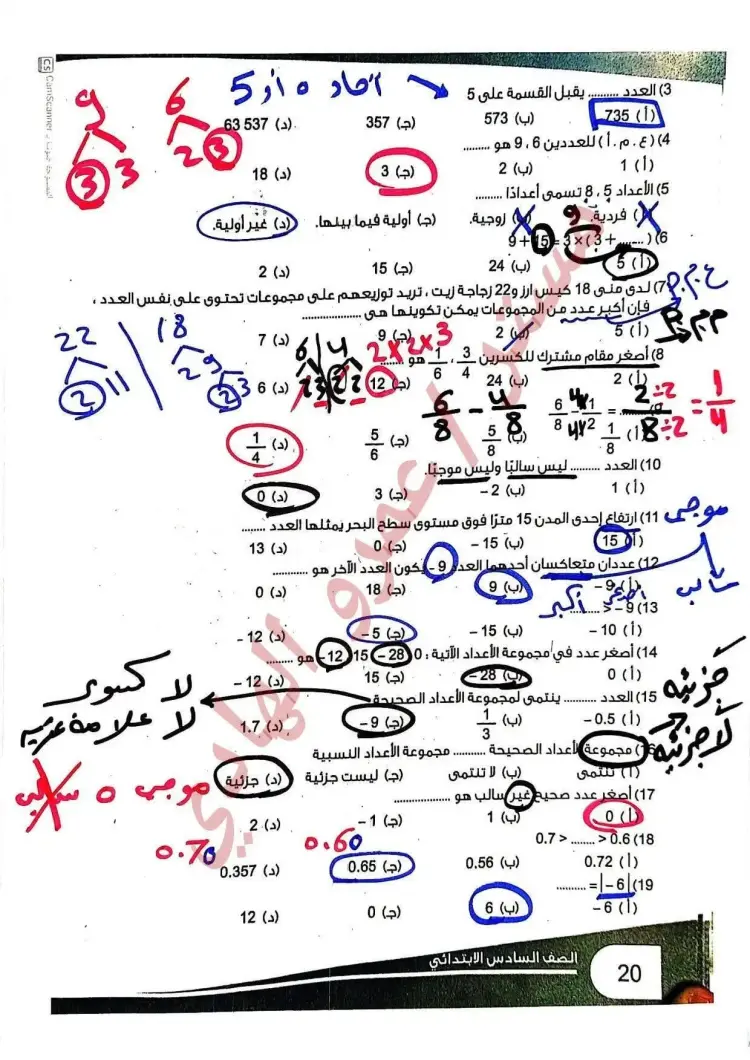 CS CamScanner الممسوحة ضوئيا بـ
آحاد 0 أو 5
9
3 3
6
2 3
3) العدد .......... يقبل القسمة على 5
(أ) 735 (ب) 573 (جـ) 357 (د) 63 537
4) (ع . م . أ) للعددين 6 ، 9 هو .........
(أ) 1 (ب) 2 (جـ) 3 (د) 18
5) الأعداد 5 ، 8 تسمى أعدادًا .........
(أ) فردية. (ب) زوجية. (جـ) أولية فيما بينها. (د) غير أولية.
9
6) (...... + 3) × 3 = 15 + 9
(أ) 5 (ب) 24 (جـ) 15 (د) 2
7) لدى منى 18 كيس أرز و22 زجاجة زيت ، تريد توزيعهم على مجموعات تحتوي على نفس العدد ،
فإن أكبر عدد من المجموعات يمكن تكوينها هي ..................
(أ) 5 (ب) 2 (جـ) 9 (د) 7
22
2 11
18
2 9
2 3
6 4
2 3 2 2
2×2×3
8) أصغر مقام مشترك للكسرين 3/4 ، 1/6 هو ........
(أ) 2 (ب) 24 (جـ) 12 (د) 6
6/8 - 4×1/4×2 = 2÷2/8÷2 = 1/4
6/8 - 4/8
(أ) 1/8 (ب) 5/8 (جـ) 5/6 (د) 1/4
10) العدد .......... ليس سالبًا وليس موجبًا.
(أ) 1 (ب) 2 – (جـ) 3 (د) 0
11) ارتفاع إحدى المدن 15 مترًا فوق مستوى سطح البحر يمثلها العدد ........
موجب
(أ) 15 (ب) 15 – (جـ) 0 (د) 13
12) عددان متعاكسان أحدهما العدد 9 – يكون العدد الآخر هو ...........
سالب
(أ) 9 – (ب) 9 (جـ) 18 (د) 0
أصغر أكبر
13) 9 – > ........
(أ) 10 – (ب) 15 – (جـ) 5 – (د) 12 –
14) أصغر عدد في مجموعة الأعداد الآتية : 0 ، 28 – ، 15 ، 12 – هو .........
(أ) 0 (ب) 28 – (جـ) 15 (د) 12 –
جزئية
لا جزئية
لا كسور
لا علامة عشرية
15) العدد .......... ينتمي لمجموعة الأعداد الصحيحة
(أ) 0.5 – (ب) 1/3 (جـ) 9 – (د) 1.7
16) مجموعة الأعداد الصحيحة .......... مجموعة الأعداد النسبية
(أ) تنتمي (ب) لا تنتمي (جـ) ليست جزئية (د) جزئية
موجب 0 سالب
17) أصغر عدد صحيح غير سالب هو ..............
(أ) 0 (ب) 1 (جـ) 1 – (د) 2
0.60 0.70
18) 0.6 < ........ < 0.7
(أ) 0.72 (ب) 0.56 (جـ) 0.65 (د) 0.357
19) |6 –| = ..........
(أ) 6 – (ب) 6 (جـ) 0 (د) 12
20 الصف السادس الابتدائي